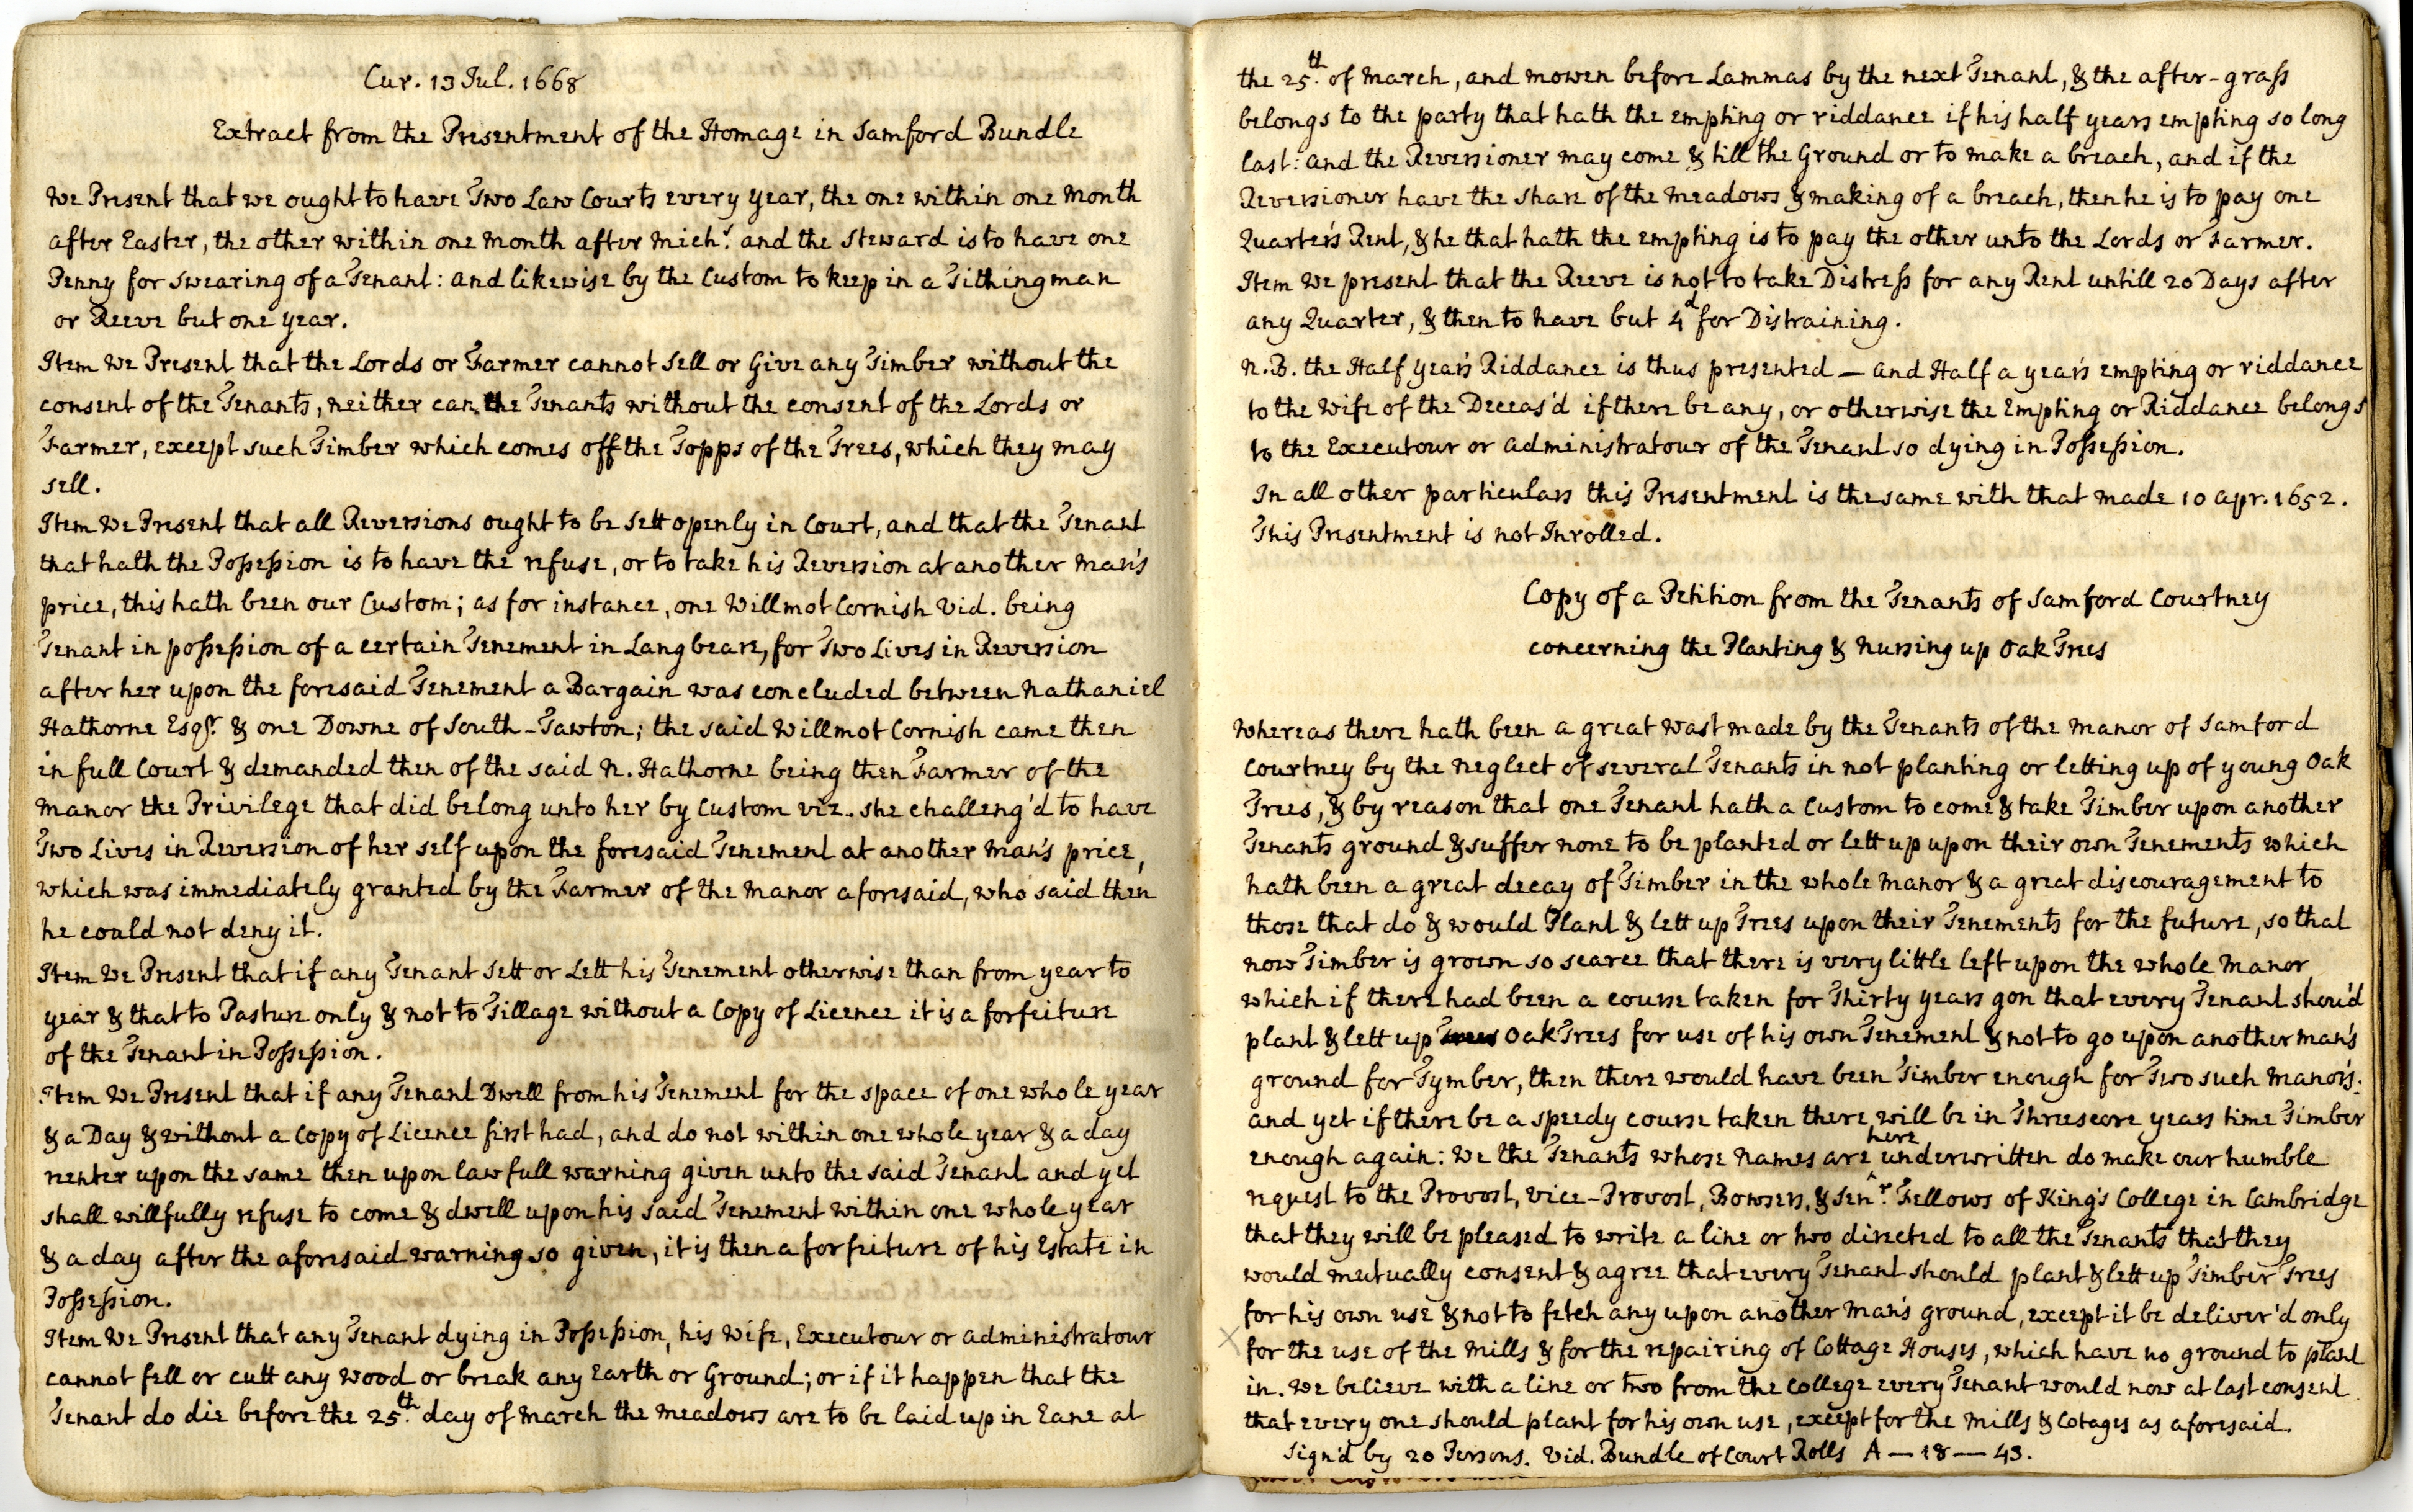 Cur. 13 Jul. 1668
Extract from the Presentment of the Homage in Samford Bundle
We Present that we ought to have Two Law Courts every year, the one within one Month
after Easter, the other within one Month after Mich.s and the Steward is to have one
Penny for swearing of a Tenant: and likewise by the Custom to keep in a Tithingman
or Reeve but one year.
Item We Present that the Lords or Farmer cannot Sell or Give any Timber without the
consent of the Tenants, neither can the Tenants without the consent of the Lords or
Farmer, except such Timber which comes off the Topps of the Trees, which they may
sell.
Item We Present that all Reversions ought to be Sett openly in Court, and that the Tenant
that hath the Possession is to have the refuse, or to take his Reversion at another Man's
price, this hath been our Custom; as for instance, one Willmot Cornish Vid. being
Tenant in possession of a certain Tenement in Langbeare, for Two Lives in Reversion
after her upon the foresaid Tenement a Bargain was concluded between Nathaniel
Hathorne Esqr. & one Downe of South-Tawton; the said Willmot Cornish came then
in full Court & demanded then of the said N. Hathorne being then Farmer of the
Manor the Privilege that did belong unto her by Custom viz. she challeng'd to have
Two Lives in Reversion of her self upon the foresaid Tenement at another Man's price,
which was immediately granted by the Farmer of the Manor aforesaid, who said then
he could not deny it.
Item We Present that if any Tenant Sett or Lett his Tenement otherwise than from year to
year & that to Pasture only & not to Tillage without a Copy of Licence it is a forfeiture
of the Tenant in Possession.
Item We Present that if any Tenant Dwell from his Tenement for the space of one whole year
& a Day & without a Copy of Licence first had, and do not within one whole year & a day
renter upon the same then upon lawfull warning given unto the said Tenant and yet
shall willfully refuse to come & dwell upon his said Tenement within one whole year
& a day after the aforesaid warning so given, it is then a forfeiture of his Estate in
Possession.
Item We Present that any Tenant dying in Possession, his Wife, Executour or Administratour
cannot fell or cutt any Wood or break any Earth or Ground; or if it happen that the
Tenant do die before the 25.th day of March the Meadows are to be laid up in Eane at
the 25.th of March, and mowen before Lammas by the next Tenant, & the after-grass
belongs to the party that hath the empting or riddance if his half years empting so long
last: and the Reversioner may come & till the Ground or to make a breach, and if the
Reversioner have the share of the Meadows & making of a breach, then he is to pay one
Quarter's Rent, & he that hath the empting is to pay the other unto the Lords or Farmer.
Item We present that the Reeve is not to take Distress for any Rent untill 20 Days after
any Quarter, & then to have but 4d for Distraining.
N.B. the Half year's Riddance is thus presented — and Half a year's empting or riddance
to the Wife of the Deceas'd if there be any, or otherwise the Empting or Riddance belongs
to the Executour or Administratour of the Tenant so dying in Possession.
In all other particulars this Presentment is the same with that made 10 Apr. 1652.
This Presentment is not Inrolled.
Copy of a Petition from the Tenants of Samford Courtney
concerning the Planting & Nursing up Oak Trees
Whereas there hath been a great Wast made by the Tenants of the Manor of Samford
Courtney by the Neglect of several Tenants in not planting or letting up of young Oak
Trees, & by reason that one Tenant hath a Custom to come & take Timber upon another
Tenants ground & suffer none to be planted or lett up upon their own Tenements which
hath been a great decay of Timber in the whole Manor & a great discouragement to
those that do & would Plant & lett up Trees upon their Tenements for the future, so that
now Timber is grown so scarce that there is very little left upon the whole Manor
which if there had been a course taken for Thirty years gon that every Tenant shou'd
plant & lett up Trees Oak Trees for use of his own Tenement & not to go upon another man's
ground for Tymber, then there would have been Timber enough for Two such Manors:
and yet if there be a speedy course taken there will be in Threescore years time Timber
enough again: We the Tenants whose Names are here underwritten do make our humble
request to the Provost, Vice-Provost, Bowsers, & Senr. Fellows of King's College in Cambridge
that they will be pleased to write a line or two directed to all the Tenants that they
would mutually consent & agree that every Tenant should plant & lett up Timber Trees
for his own use & not to fetch any upon another Man's ground, except it be deliver'd only
for the use of the Mills & for the repairing of Cottage Houses, which have no ground to plant
in. We believe with a line or two from the College every Tenant would now at last consent
that every one should plant for his own use, except for the Mills & Cotages as aforesaid.
Sign'd by 20 Persons. Vid. Bundle of Court Rolls A—18—43.